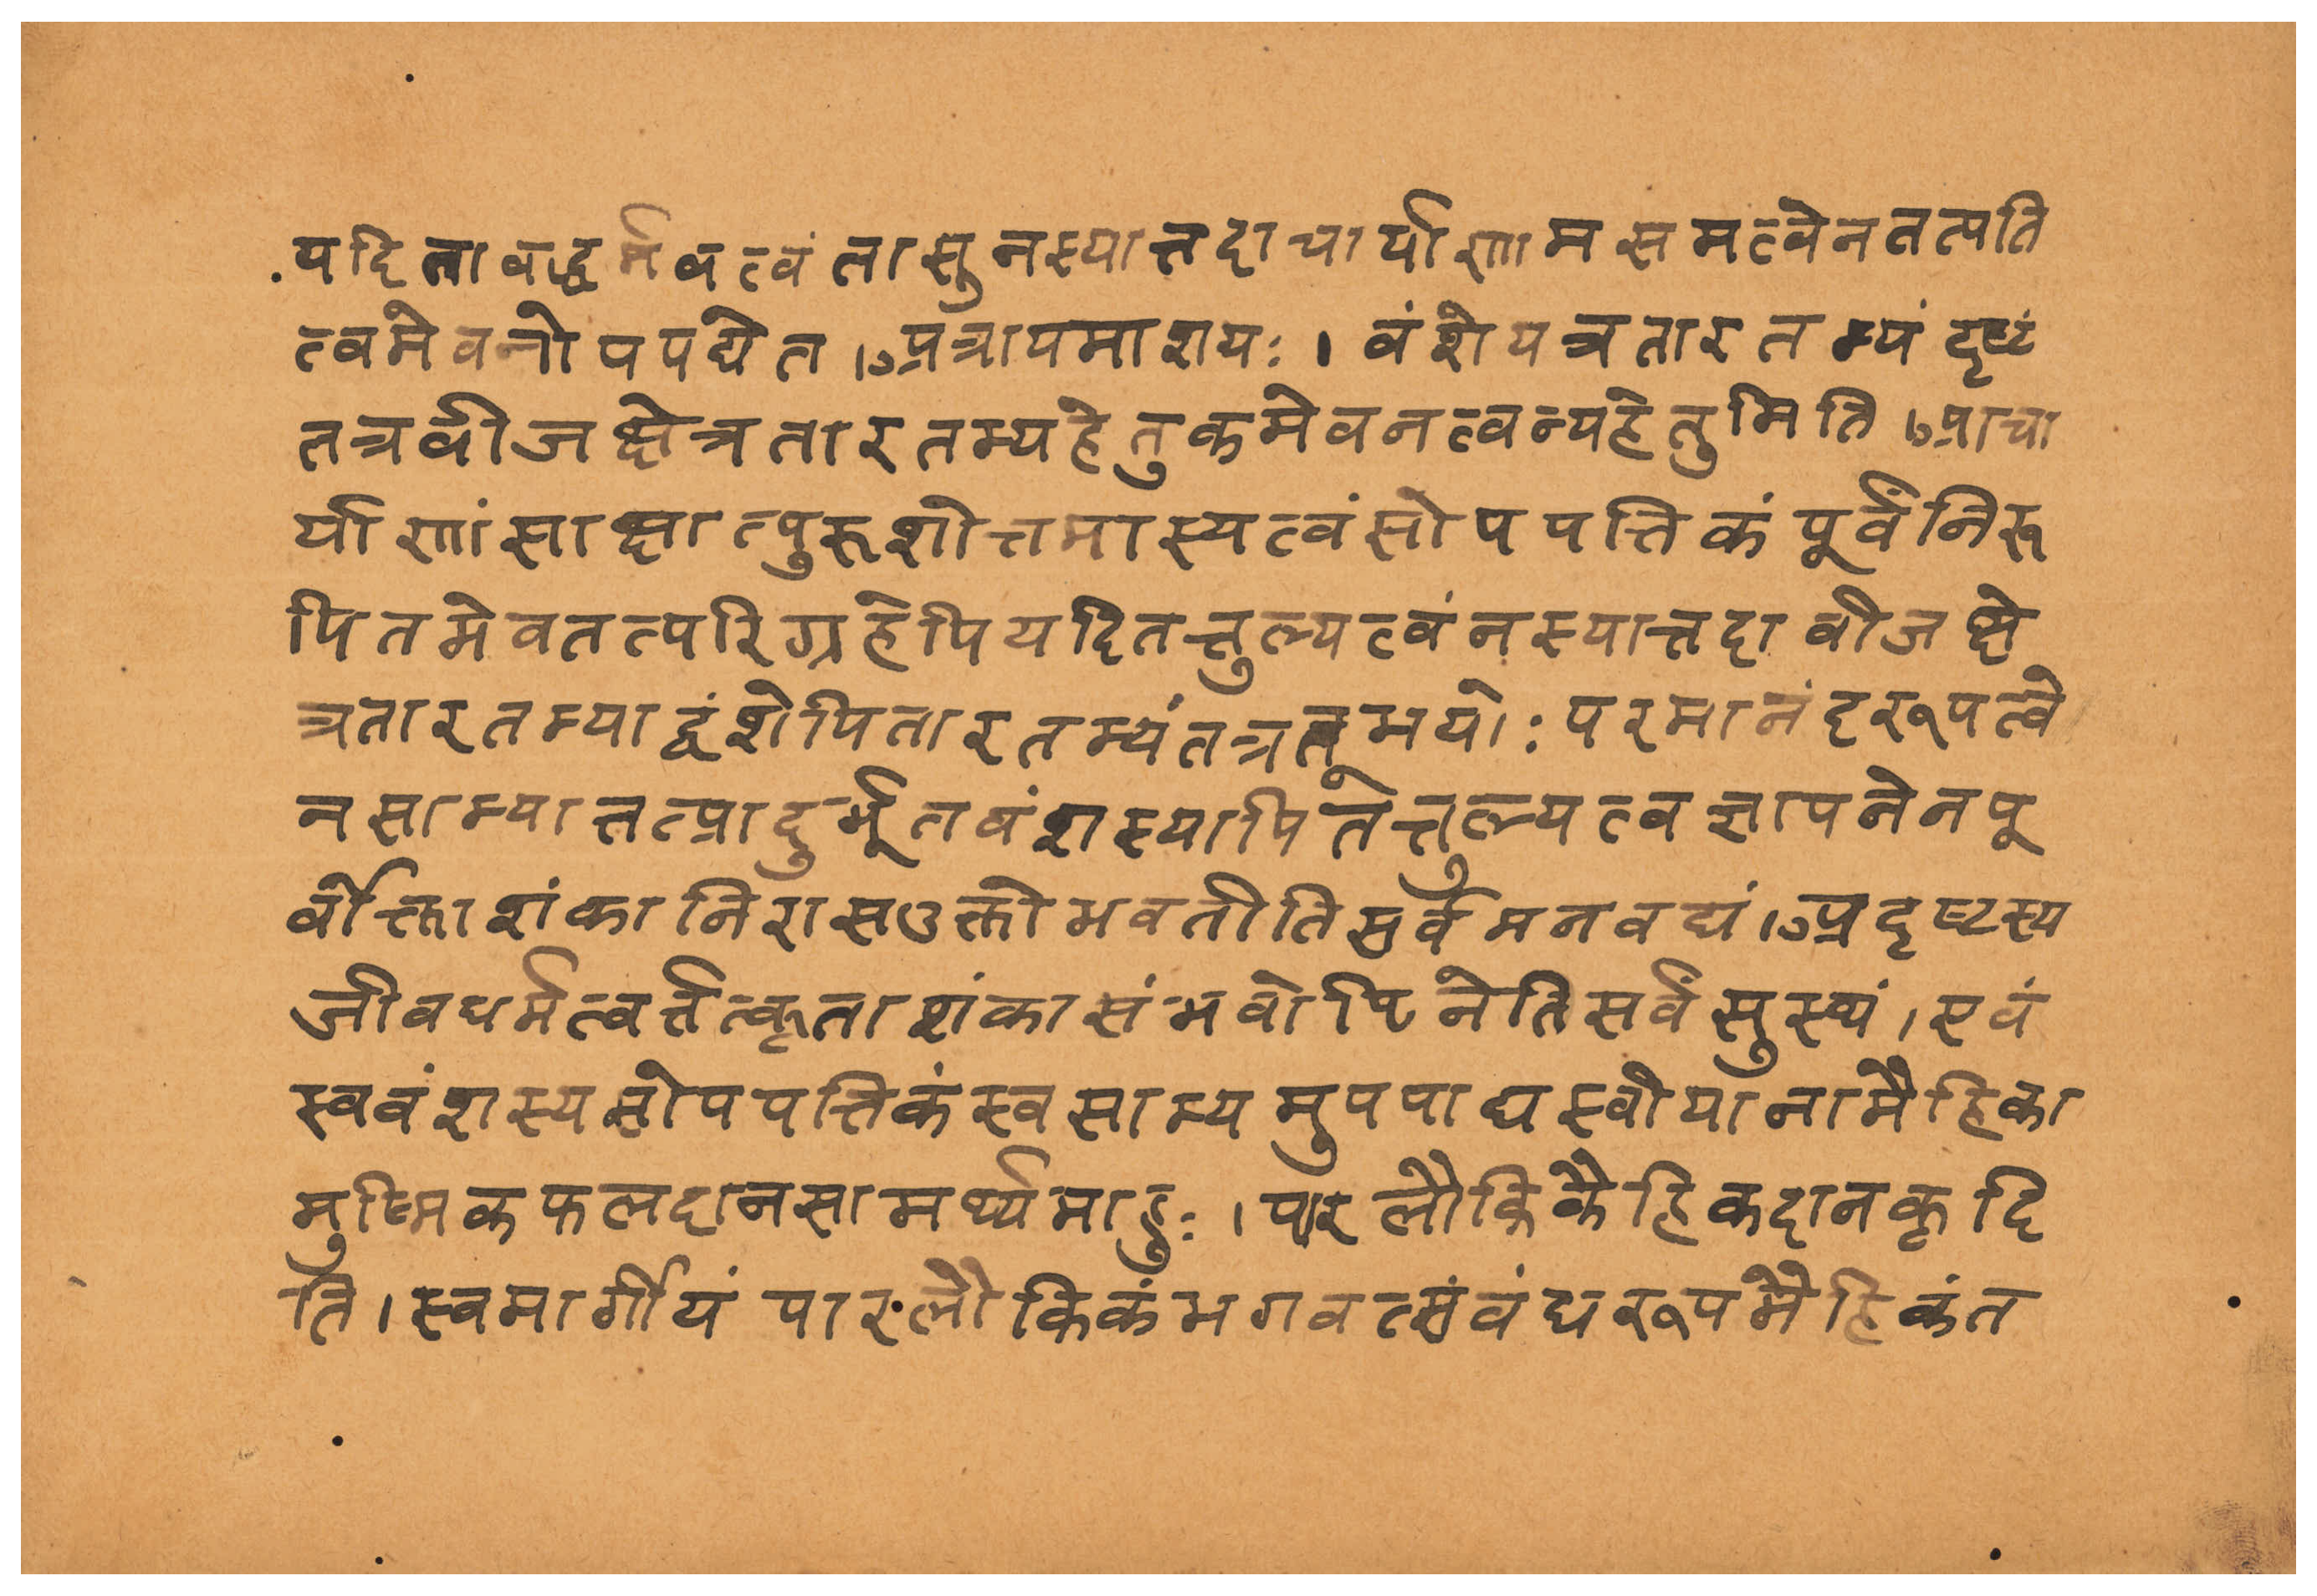 यदितावद्धर्मवत्वंतासुनस्यात्तदाचार्याणामसमत्वेनतत्पति
त्वमेवनोपपद्येत।अत्रायमाशयः।वंशेयत्रतारतम्यंदृष्टं
तत्रवीजक्षेत्रतारतम्यहेतुकमेवनत्वन्यहेतुमिति।आचा
र्याणांसाक्षात्पुरूशोत्तमास्यत्वंसोपपत्तिकंपूर्वंनिरू
पितमेवतत्परिग्रहेपियदितत्तुल्यत्वंनस्यात्तदावीजक्षे
त्रतारतम्याद्वंशेपितारतम्यंतत्रतूभयोः परमानंदरूपत्वे
नसाम्यात्तत्प्रादुर्भूतवंशस्यापितेत्तुल्यत्वज्ञापनेनपू
र्वोक्ताशंकानिरासउक्तोभवतीतिसर्वमनवद्यं।अदृष्टस्य
जीवधर्मत्वर्त्तत्कृताशंकासंभवोपिनेतिसर्वंसुस्थं।एवं
स्ववंशस्यसोपपत्तिकंस्वसाम्यमुपपाद्यस्वीयानामैहिका
मुष्मिकफलदानसामर्थ्यमाहुः।पारलौकिकैहिकदानकृदि
ति।स्वमार्गीयं पारलौकिकंभगवत्संवंधरूपमैहिकंत